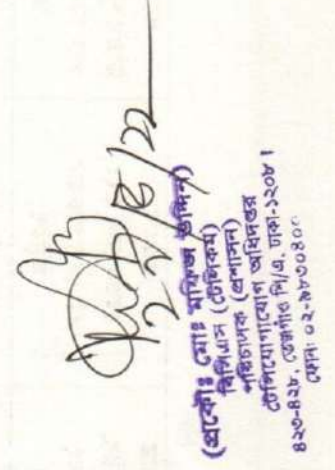 ১২/৪/২২
(প্রকৌঃ মোঃ মফিজ উদ্দিন)
বিসিএস (টেলিকম)
পরিচালক (প্রশাসন)
টেলিযোগাযোগ অধিদপ্তর
৪২৩-৪২৮, তেজগাঁও শি/এ, ঢাকা-১২০৮।
ফোন: ০২-৯৮৭০৪০০